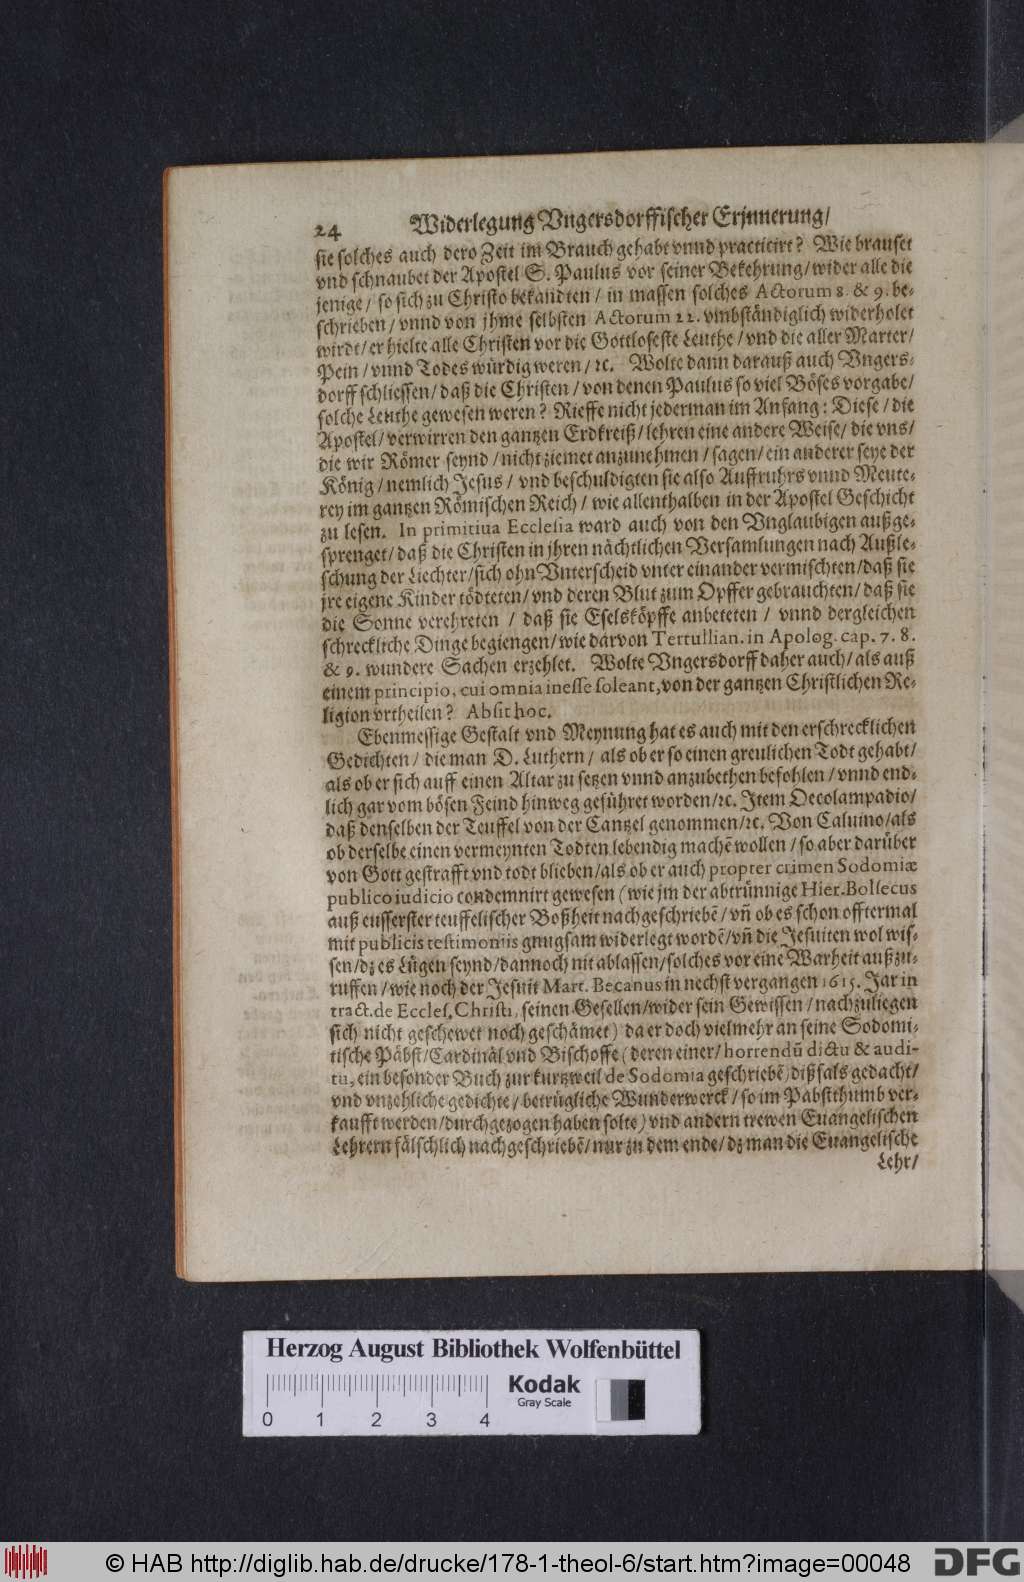 24 Widerlegung Vngersdorffischer Erjnnerung/
sie solches auch dero Zeit im Brauch gehabt vnnd practicirt? Wie brauset
vnd schnaubet der Apostel S. Paulus vor seiner Bekehrung/wider alle die
jenige/ so sich zu Christo bekandten/ in massen solches Actorum 8. & 9. be-
schrieben/ vnnd von jhme selbsten Actorum 22. vmbständiglich widerholet
wirdt/ er hielte alle Christen vor die Gottloseste Leuthe/ vnd die aller Marter/
Pein/ vnnd Todes würdig weren/ ꝛc. Wolte dann darauß auch Vngers-
dorff schliessen/ daß die Christen/ von denen Paulus so viel Böses vorgabe/
solche Leuthe gewesen weren? Rieffe nicht jederman im Anfang: Diese/ die
Apostel/ verwirren den gantzen Erdkreiß/ lehren eine andere Weise/ die vns/
die wir Römer seynd/ nicht ziemet anzunehmen/ sagen/ ein anderer seye der
König/ nemlich Jesus/ vnd beschuldigten sie also Auffruhrs vnnd Meute-
rey im gantzen Römischen Reich/ wie allenthalben in der Apostel Geschicht
zu lesen. In primitiua Ecclesia ward auch von den Vnglaubigen außge-
sprenget/ daß die Christen in jhren nächtlichen Versamlungen nach Außle-
schung der Liechter/ sich ohn Vnterscheid vnter einander vermischten/ daß sie
jre eigene Kinder tödteten/ vnd deren Blut zum Opffer gebrauchten/ daß sie
die Sonne verehreten/ daß sie Eselsköpffe anbeteten/ vnnd dergleichen
schreckliche Dinge begiengen/ wie darvon Tertullian. in Apolog. cap. 7. 8.
& 9. wundere Sachen erzehlet. Wolte Vngersdorff daher auch/ als auß
einem principio, cui omnia inesse soleant, von der gantzen Christlichen Re-
ligion vrtheilen? Absit hoc.
Ebenmessige Gestalt vnd Meynung hat es auch mit den erschrecklichen
Gedichten/ die man D. Luthern/ als ob er so einen greulichen Todt gehabt/
als ob er sich auff einen Altar zu setzen vnnd anzubethen befohlen/ vnnd end-
lich gar vom bösen Feind hinweg geführet worden/ꝛc. Item Oecolampadio/
daß denselben der Teuffel von der Cantzel genommen/ꝛc. Von Caluino/als
ob derselbe einen vermeynten Todten lebendig machẽ wollen/ so aber darüber
von Gott gestrafft vnd todt blieben/als ob er auch propter crimen Sodomiæ
publico iudicio condemnirt gewesen (wie jm der abtrünnige Hier. Bollecus
auß eusserster teuffelischer Boßheit nachgeschriebẽ/ vñ ob es schon offtermal
mit publicis testimoniis gnugsam widerlegt wordẽ/vñ die Jesuiten wol wis-
sen/dz es Lügen seynd/dannoch nit ablassen/solches vor eine Warheit außzu-
ruffen/ wie noch der Jesuit Mart. Becanus in nechst vergangen 1615. Jar in
tract. de Eccles. Christi, seinen Gesellen/wider sein Gewissen/ nachzuliegen
sich nicht geschewet noch geschämet) da er doch vielmehr an seine Sodomi-
tische Päbst/Cardinäl vnd Bischoffe (deren einer/ horrendũ dictu & audi-
tu, ein besonder Buch zur kurtzweil de Sodomia geschriebẽ) dißfals gedacht/
vnd vnzehliche gedichte/ betrügliche Wunderwerck/ so im Pabstthumb ver-
kaufft werden/durchgezogen haben solte) vnd andern trewen Euangelischen
Lehrern fälschlich nachgeschriebẽ/ nur zu dem ende/ dz man die Euangelische
Lehr/
Herzog August Bibliothek Wolfenbüttel
Kodak
Gray Scale
0 1 2 3 4
© HAB http://diglib.hab.de/drucke/178-1-theol-6/start.htm?image=00048
DFG